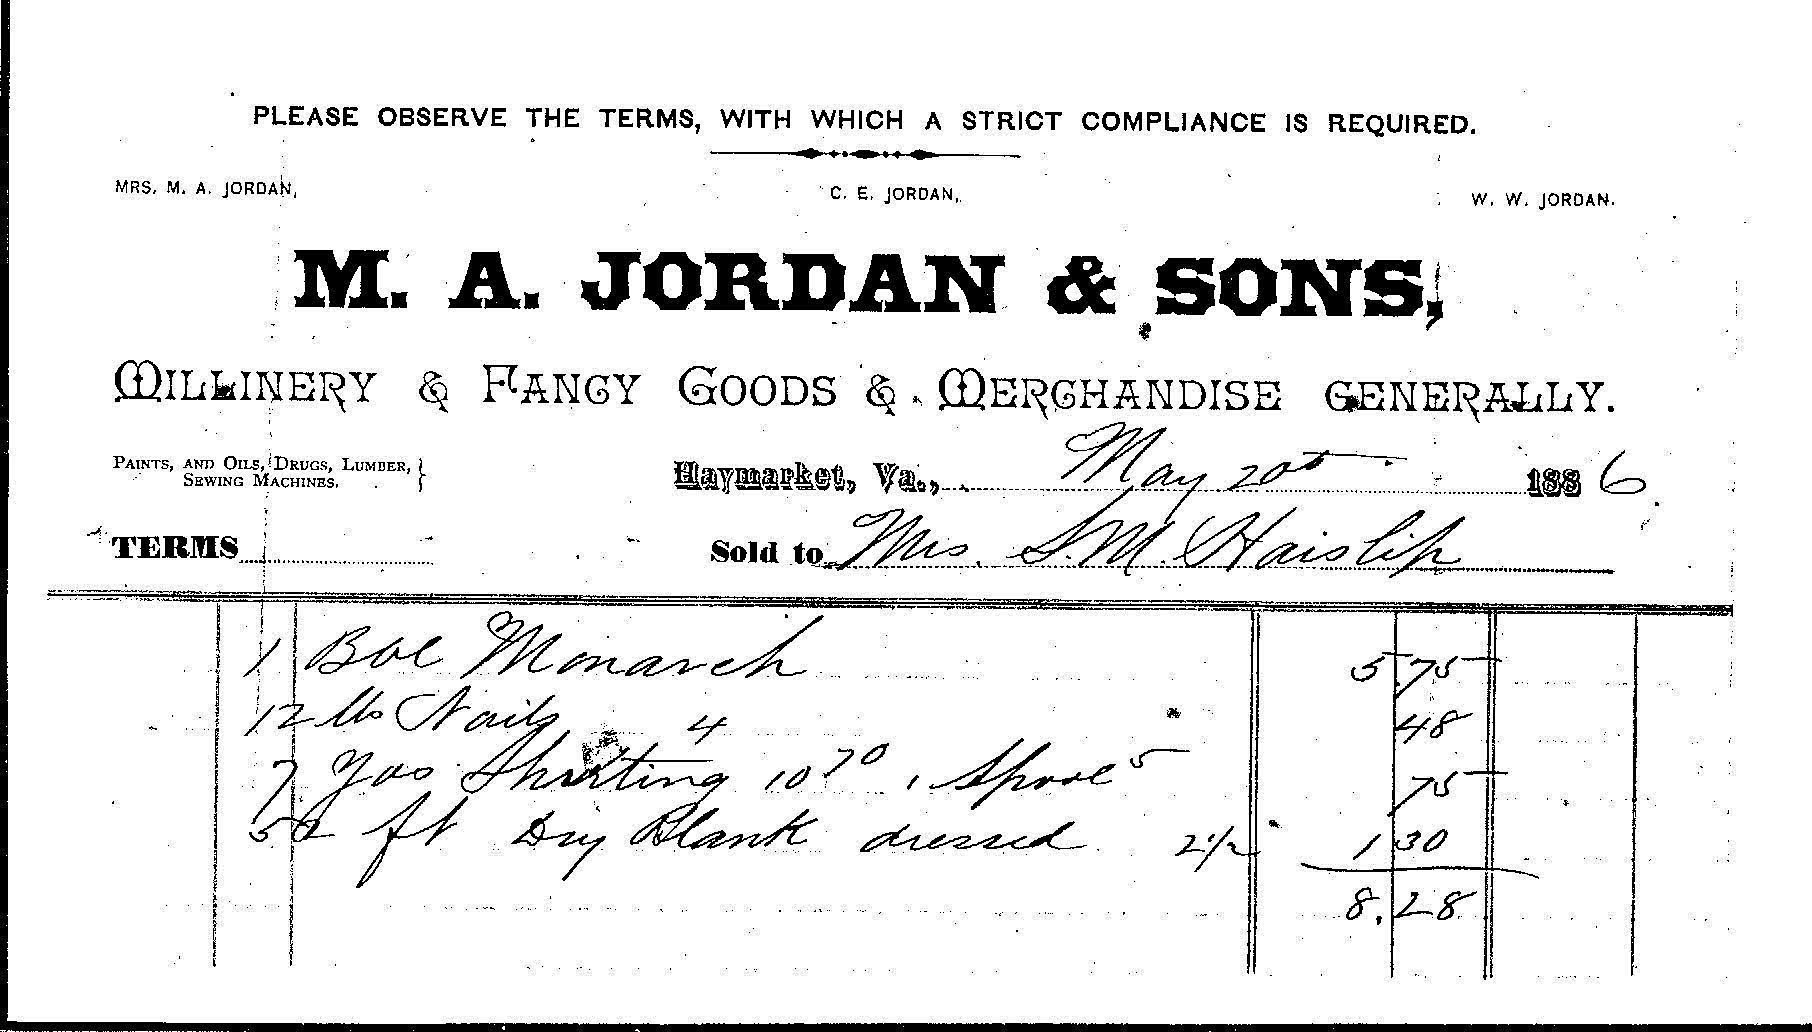 PLEASE OBSERVE THE TERMS, WITH WHICH A STRICT COMPLIANCE IS REQUIRED.
MRS. M. A. JORDAN, C. E. JORDAN, W. W. JORDAN.
M. A. JORDAN & SONS,
MILLINERY & FANCY GOODS & MERCHANDISE GENERALLY.
PAINTS, AND OILS, DRUGS, LUMBER, }
SEWING MACHINES.
Haymarket, Va., May 20th 1886
TERMS Sold to Mrs. S. M. Haislip
1 Bbl Monarch 5.75
12 lbs Nails 4 48
7 Yds Shirting 10 70, 1 Spool 5 75
52 ft Dry Plank dressed 2 1/2 1 30
8.28